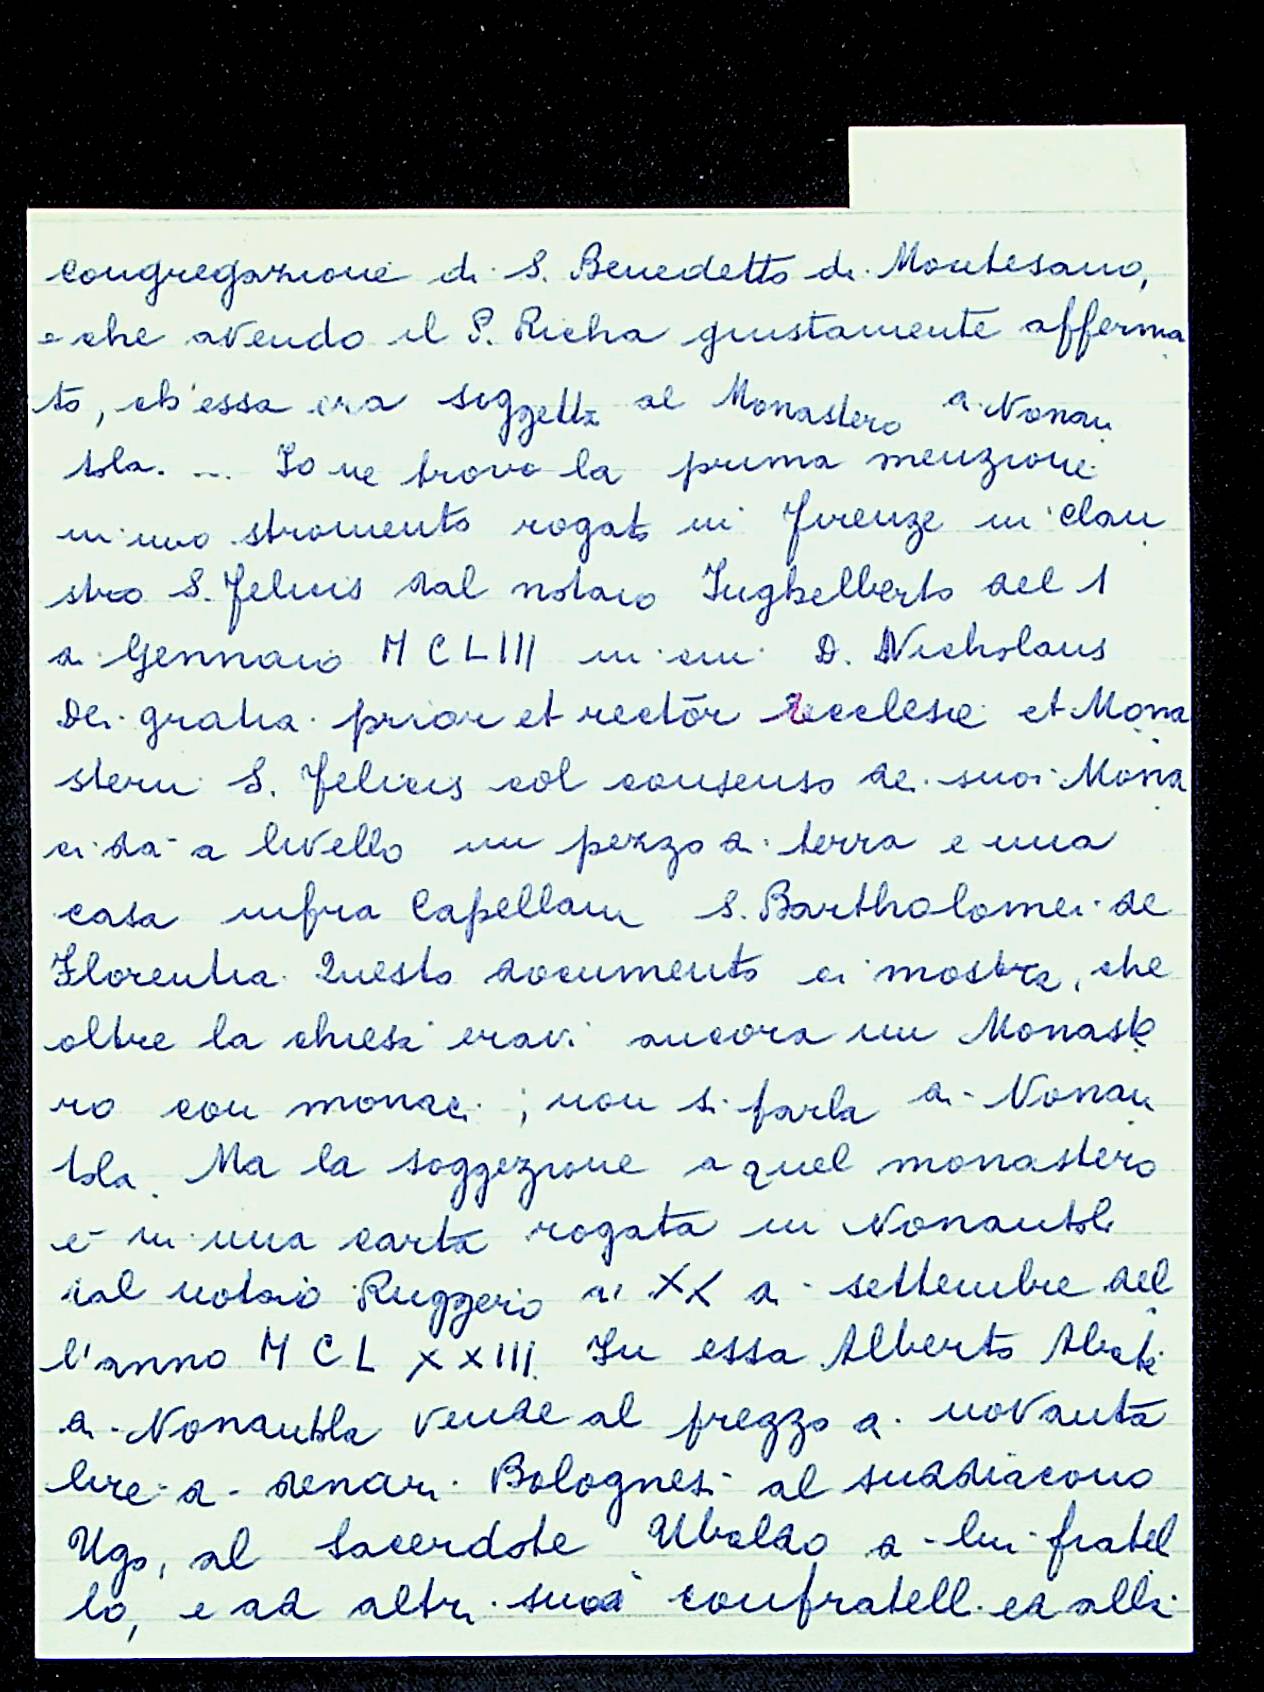 congregazione di S. Benedetto di Montesano,
e che avendo il P. Richa giustamente afferma
to, ch'essa era soggetta al Monastero di Nonan
tola. ... Io ne trovo la prima menzione
in uno stromento rogato in Firenze in clau
stro S. Felicis dal notaio Inghelberto del 1
di Gennaio MCLIII in cui D. Nicholaus
Dei gratia prior et rector ecclesie et Mona
sterii S. Felicis col consenso dei suoi Mona
ci dà a livello un pezzo di terra e una
casa infra Capellam S. Bartholomei de
Florentia. Questo documento ci mostra, che
oltre la chiesa eravi ancora un Monaste
ro con monaci; non si parla di Nonan
tola. Ma la soggezione a quel monastero
è in una carta rogata in Nonantola
dal notaio Ruggero ai XX di settembre del
l'anno MCLXXIII. In essa Alberto Abate
di Nonantola vende al prezzo di novanta
lire di denari Bolognesi al suddiacono
Ugo, al Sacerdote Ubaldo di lui fratel
lo, e ad altri suoi confratelli ed alla